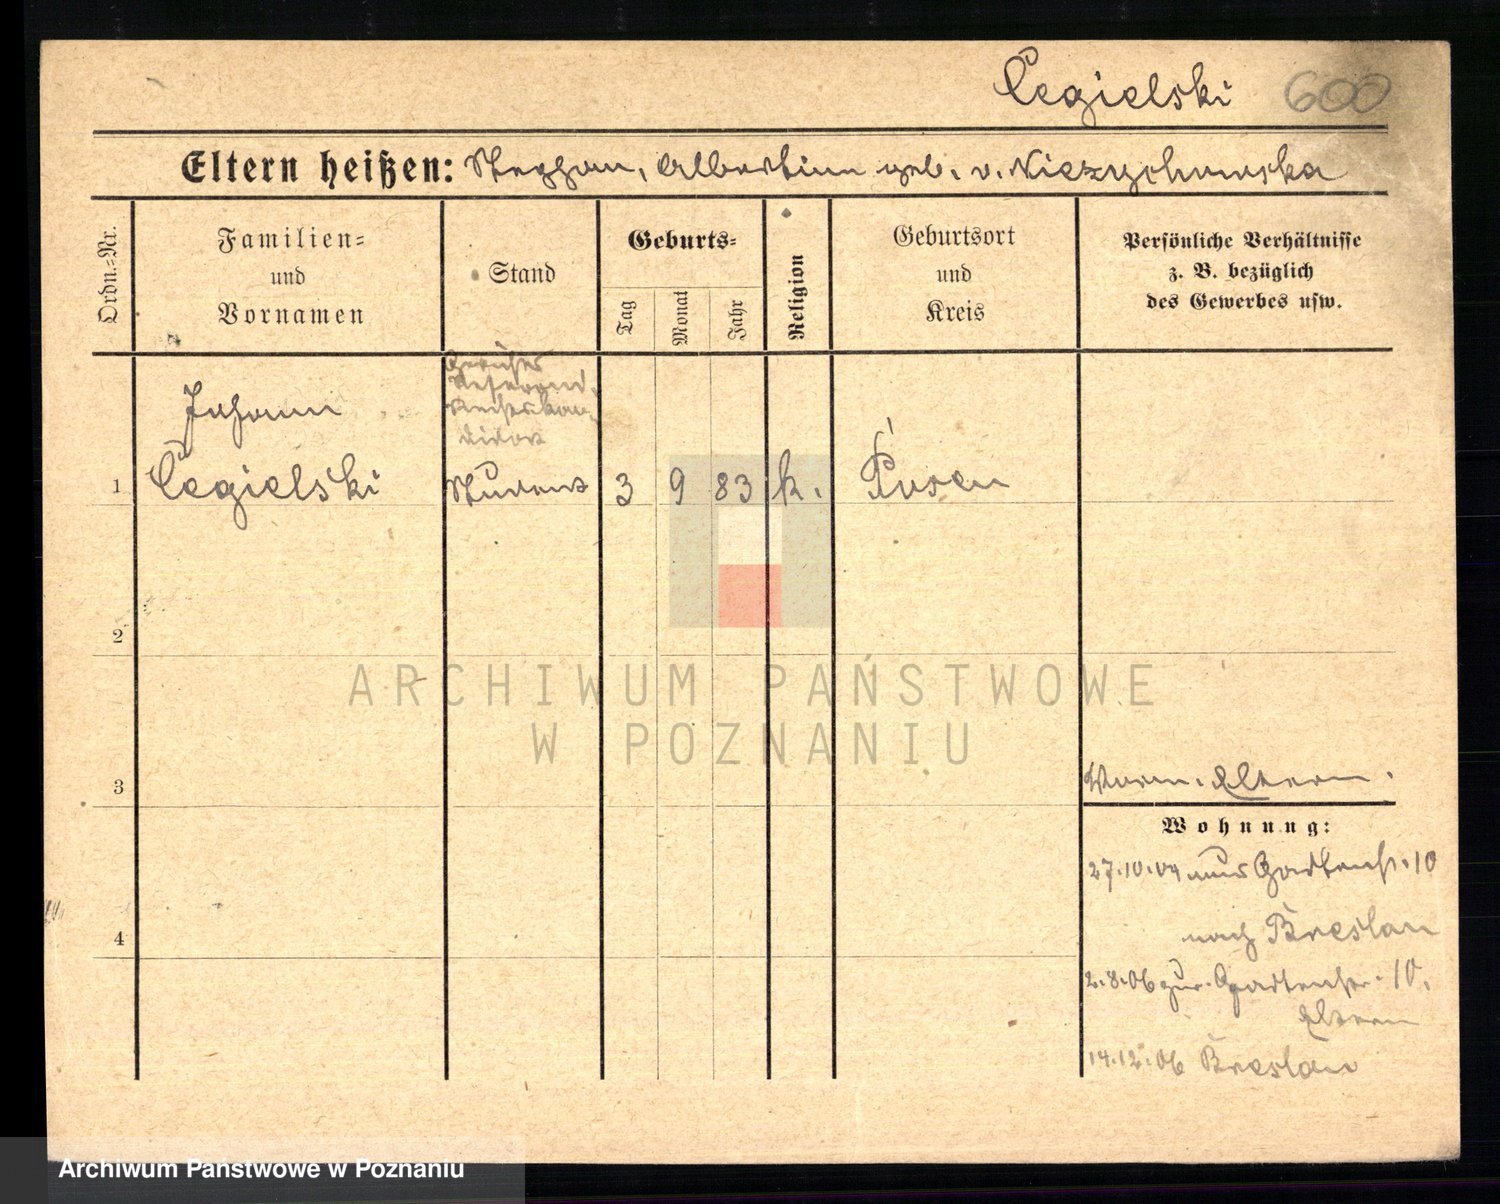 Cegielski 600
Eltern heißen: Stephan, Albertine geb. v. Niezychowska
Ordn.=Nr.
Familien=
und
Vornamen
Stand
Geburts=
Tag
Monat
Jahr
Religion
Geburtsort
und
Kreis
Persönliche Verhältnisse
z. B. bezüglich
des Gewerbes usw.
Referend.
Rechtskan-
didat
Johann
1 Cegielski Student 3 9 83 k. Posen
2
ARCHIWUM PAŃSTWOWE
W POZNANIU
3
Eltern.
Wohnung:
27.10.04 aus Gartenstr. 10
nach Breslau
2.8.06 zur. Gartenstr. 10.
Eltern
4
14.12.06 Breslau
Archiwum Państwowe w Poznaniu